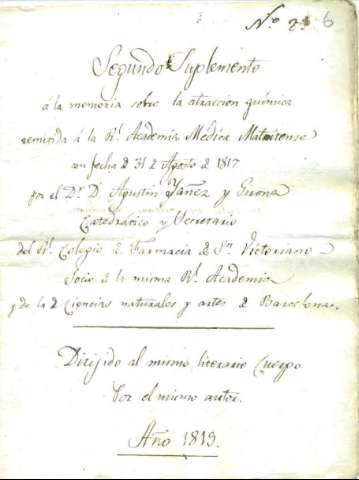 Nº 23 6
Segundo Suplemento
á la memoria sobre la atraccion química
remitida á la Rl. Academia Médica Matritense
con fecha 2 31 2 Agosto 2 1817
por el Dr. D. Agustin Yáñez y Girona
Catedrático y Secretario
del Rl. Colegio 2 Farmacia 2 Sn. Victoriano
Socio 2 la misma Rl. Academia
y de la 2 Ciencias naturales y artes 2 Barcelona.
Dirijido al mismo literario Cuerpo
Por el mismo autor.
Año 1819.